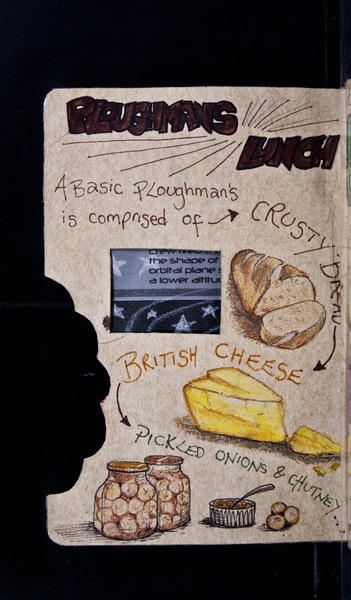 PLOUGHMANS
LUNCH
A Basic Ploughman's
is comprised of
CRUSTY BREAD
the shape of
orbital plane
a lower altitu
BRITISH CHEESE
PICKLED ONIONS & CHUTNEY...